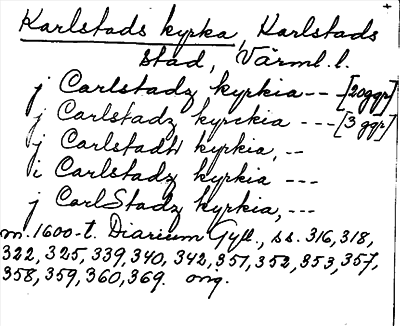 Karlstads kyrka, Karlstads
stad, Värml. l.
j Carlstadz kyrkia -- [20ggr]
j Carlstadz kyrckia --- [3 ggr]
j Carlstadtt kyrkia, --
i Carlstadz kyrkia ---
j CarlStadz kyrkia, ---
m. 1600-t. Diarium Gyll., ss. 316, 318,
322, 325, 339, 340, 342, 351, 352, 353, 357,
358, 359, 360, 369. orig.